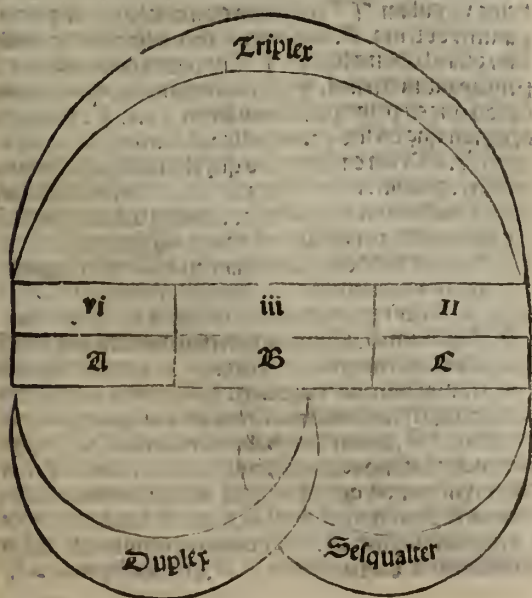 Triplex
vi iii II
A B C
Duplex Sesqualter